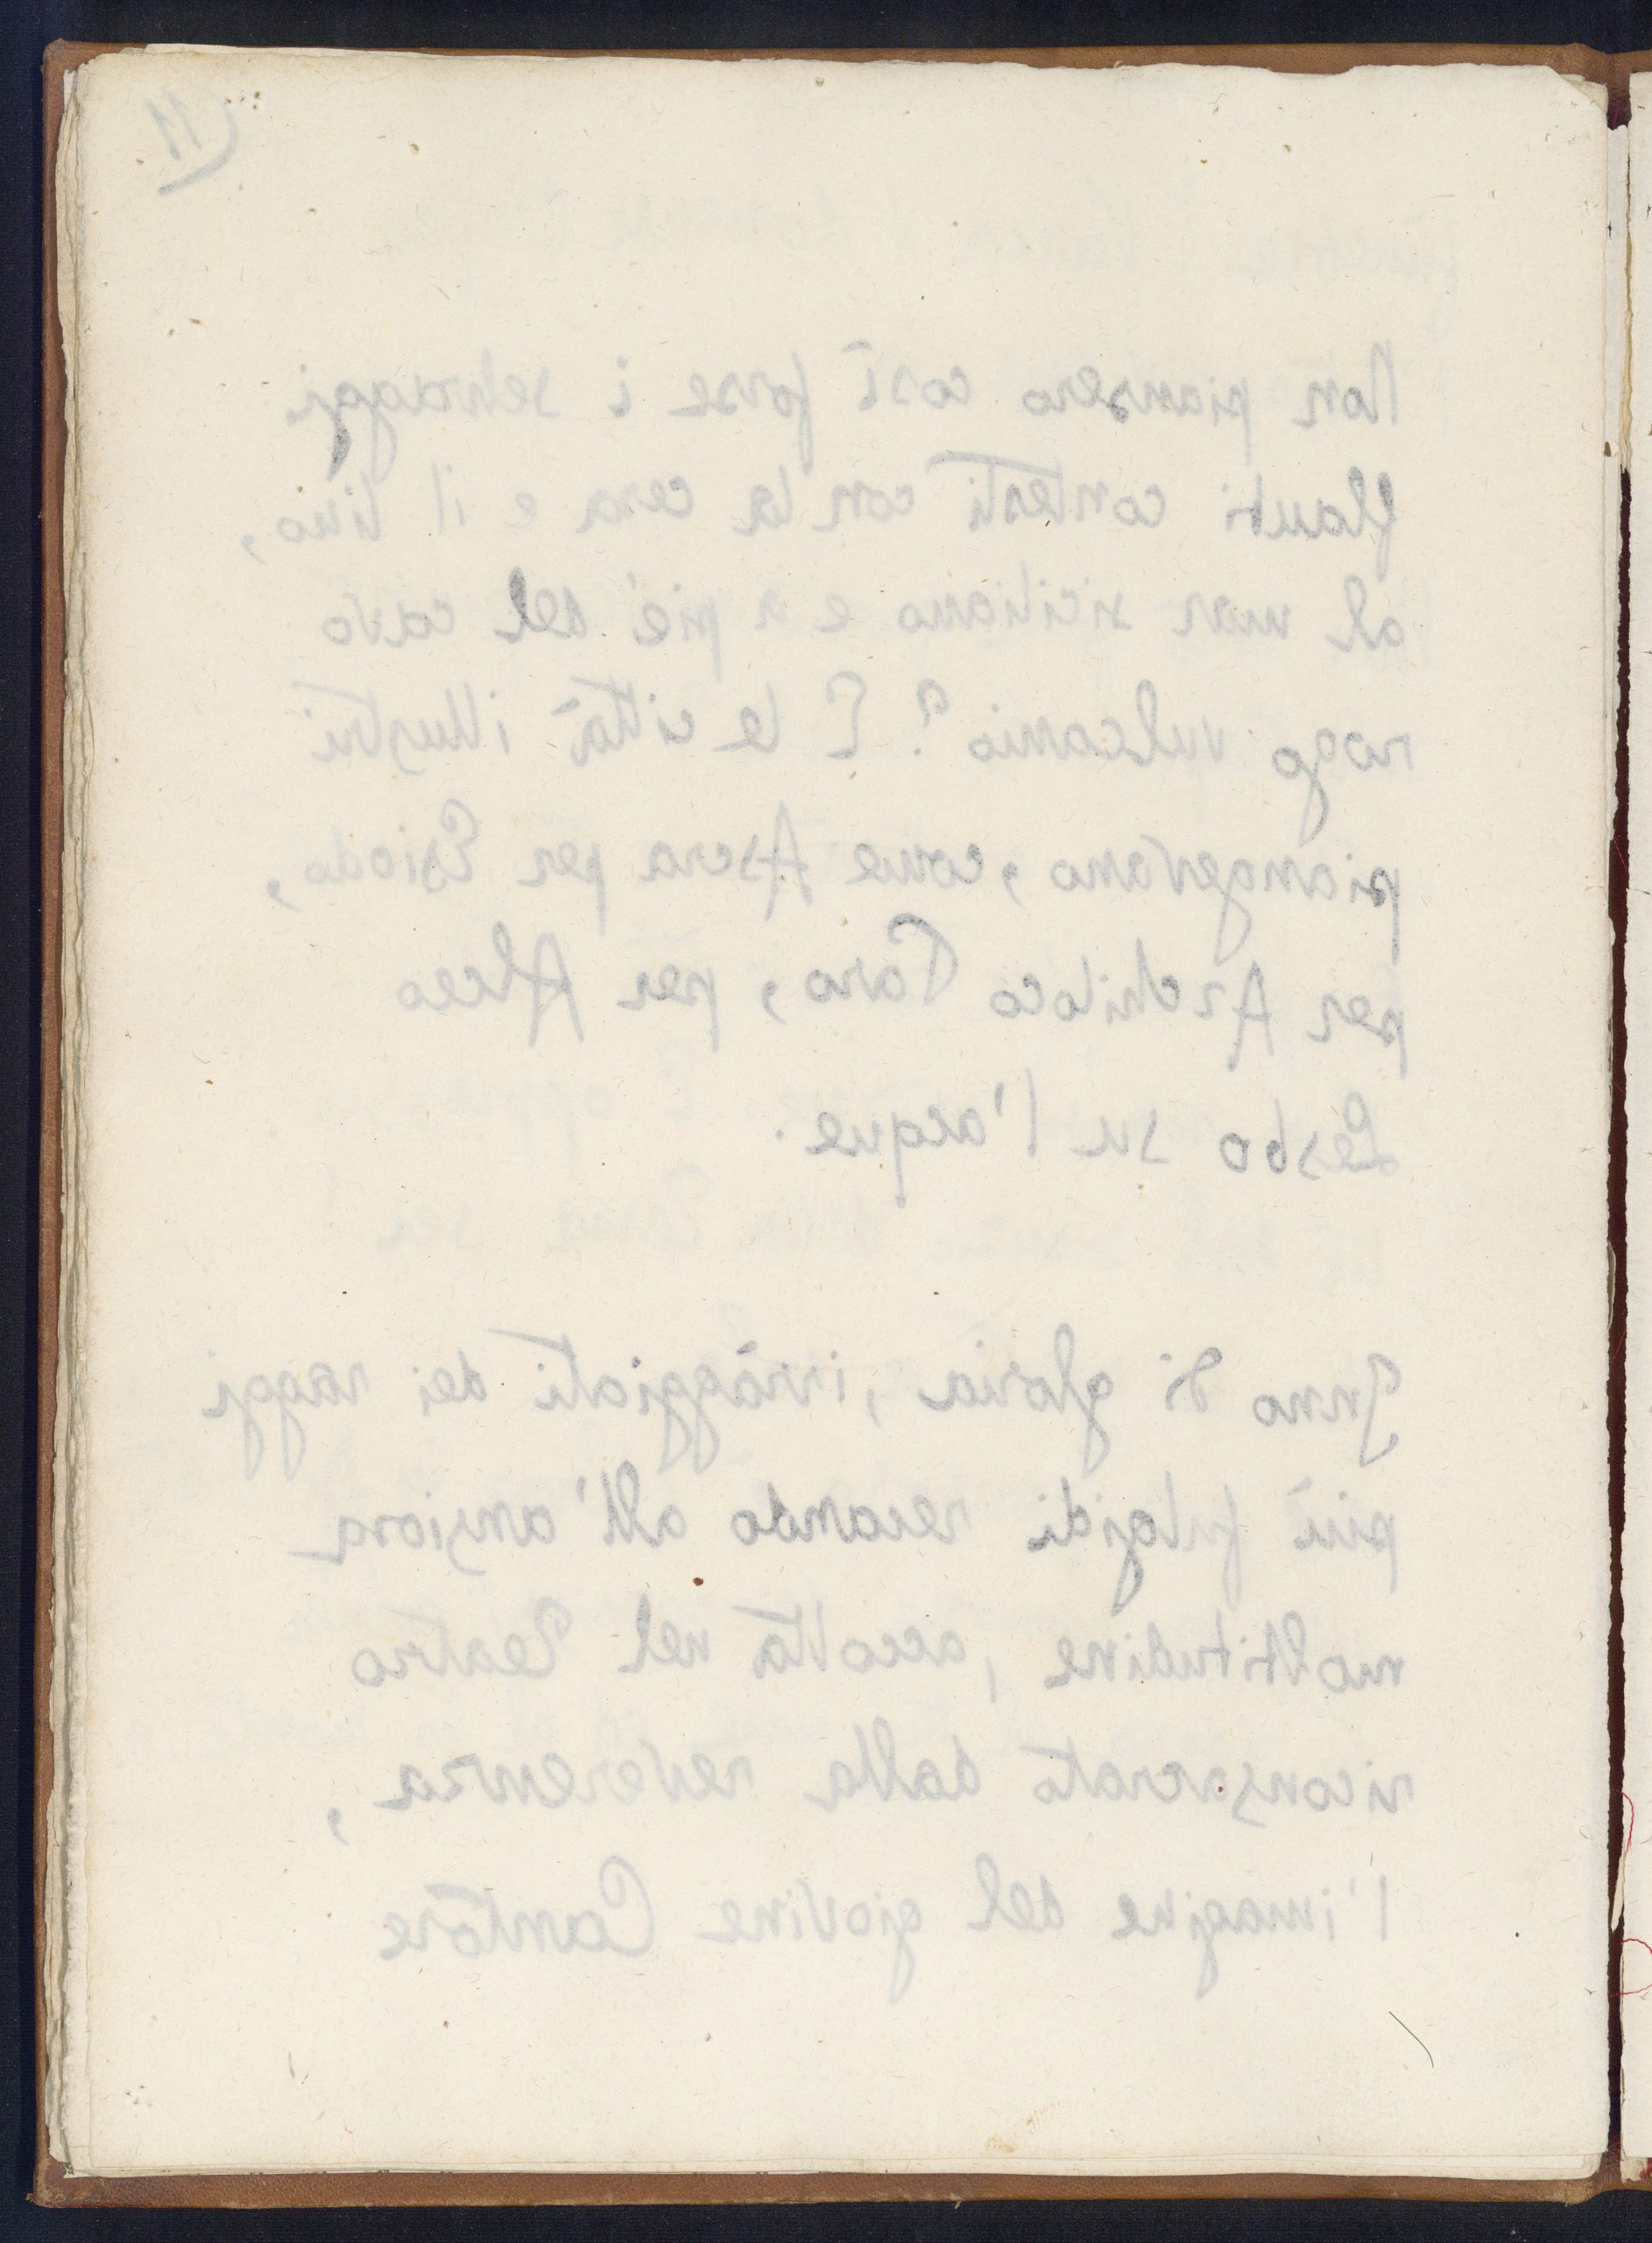 11
Non piansero così forse i selvaggi
flauti contesti con la cera e il lino,
al mar siciliano e a piè del cavo
rogo vulcanio? E le città illustri
piangevano, come Ascra per Esiodo,
per Archiloco Paro, per Alceo
Lesbo su l'acque.
Inno di gloria, irràggiati dei raggi
più fulgidi recando all'ansiosa
moltitudine, accolta nel Teatro
riconsacrato dalla reverenza,
l'imagine del giovine Cantore